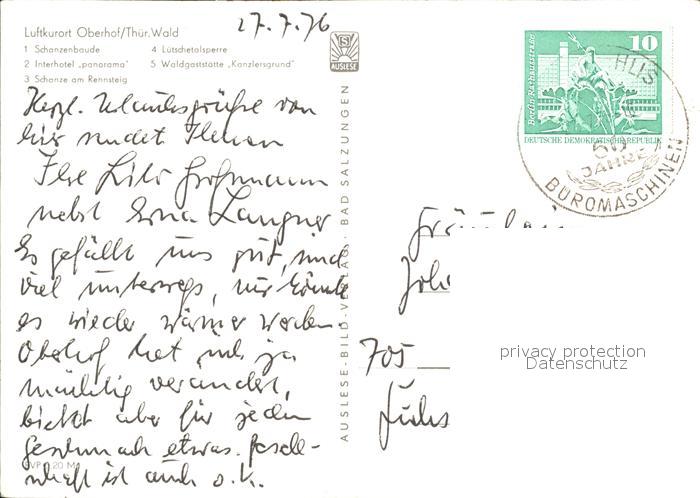 27.7.76
Luftkurort Oberhof/Thür. Wald
1 Schanzenbaude
2 Interhotel „panorama"
3 Schanze am Rennsteig
4 Lütschetalsperre
5 Waldgaststätte „Kanzlersgrund"
AUSLESE
Herzl. Urlaubsgrüße von
hier sendet Ihnen
Ihre Lilo
nebst Erna Langner
Es gefällt uns gut, sind
viel unterwegs, nur könnte
es wieder wärmer werden.
Oberhof hat sich ja
mächtig verändert,
bietet aber für jeden
Geschmack etwas. Gesell-
schaft ist auch o.k.
AUSLESE-BILD-VERLAG BAD SALZUNGEN
10
Berlin, Rathausstraße
DEUTSCHE DEMOKRATISCHE REPUBLIK
50
JAHRE
BÜROMASCHINEN
Fräulein
705
privacy protection
Datenschutz